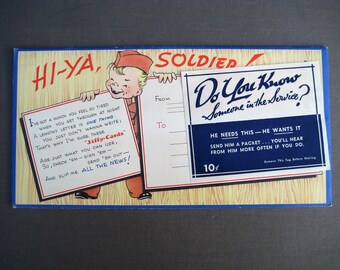 HI-YA, SOLDIER!
I'VE GOT A HUNCH YOU FEEL SO TIRED
WHEN YOU GET THROUGH AT NIGHT
A LENGTHY LETTER IS ONE THING
YOU JUST DON'T WANNA WRITE;
THAT'S WHY I'M SURE THESE
"Jilly-Cards"
ARE JUST WHAT YOU CAN USE,
SO, CHECK 'EM – SIGN 'EM –
SEND 'EM OUT –
AND SLIP ME ALL THE NEWS!
FROM
TO
Do You Know
Someone in the Service?
HE NEEDS THIS — HE WANTS IT
SEND HIM A PACKET . . . YOU'LL HEAR
FROM HIM MORE OFTEN IF YOU DO.
10¢
Remove This Tag Before Mailing